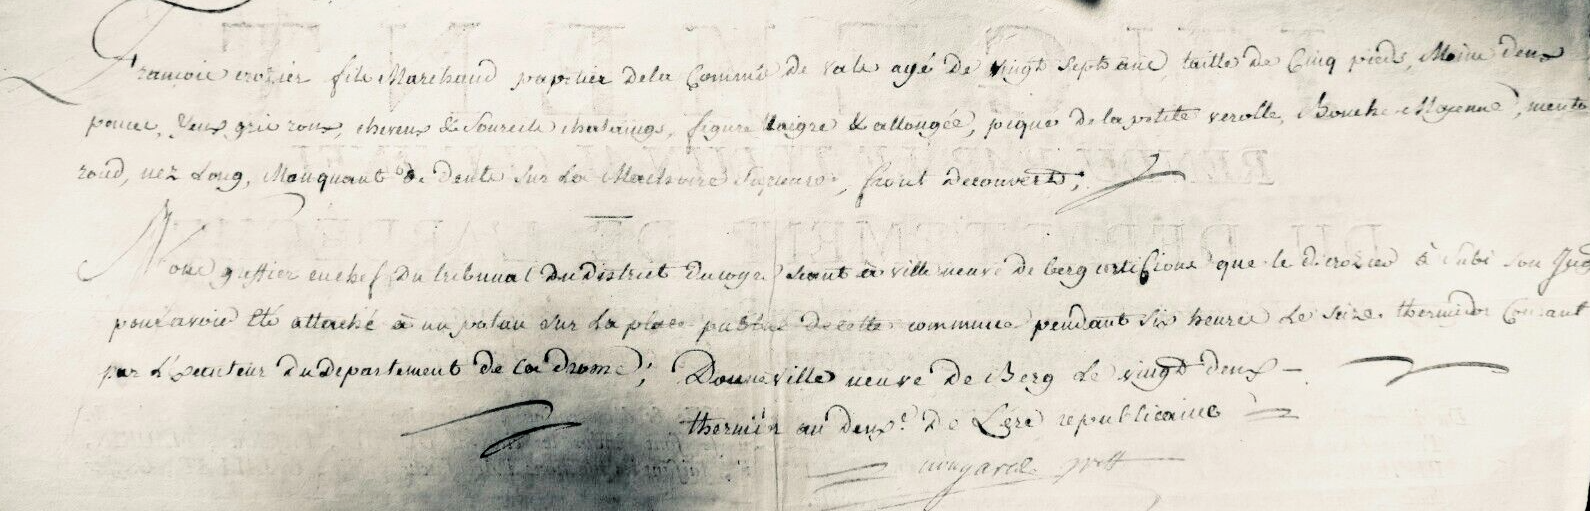 françoie crozier fils Marchand papetier dela Commune de vals agé de vingt septs ans, taille de Cinq pieds, Moins deux
pouces, yeux gris roux, cheveux & Sourcils chataings, figure Maigre & allongée, piqué de la petite verolle, Bouche Moienne, mento
rond, nez Long, Manquant de dents sur La Machoire Superieure, front decouvert;
Nous greffier en chef Du tribunal Du District Ducoye seant à villeneuve de berg certifions que le d. crozier à Subi son Jug
pour avoir été attaché à un potau sur La place publue de cette commune pendant six heures Le Seize thermidor Courant
par L'Executeur Du departement de la drome; Donneville neuve de Berg Le vingt deux
thermir an deux.e De L'ere republicaine